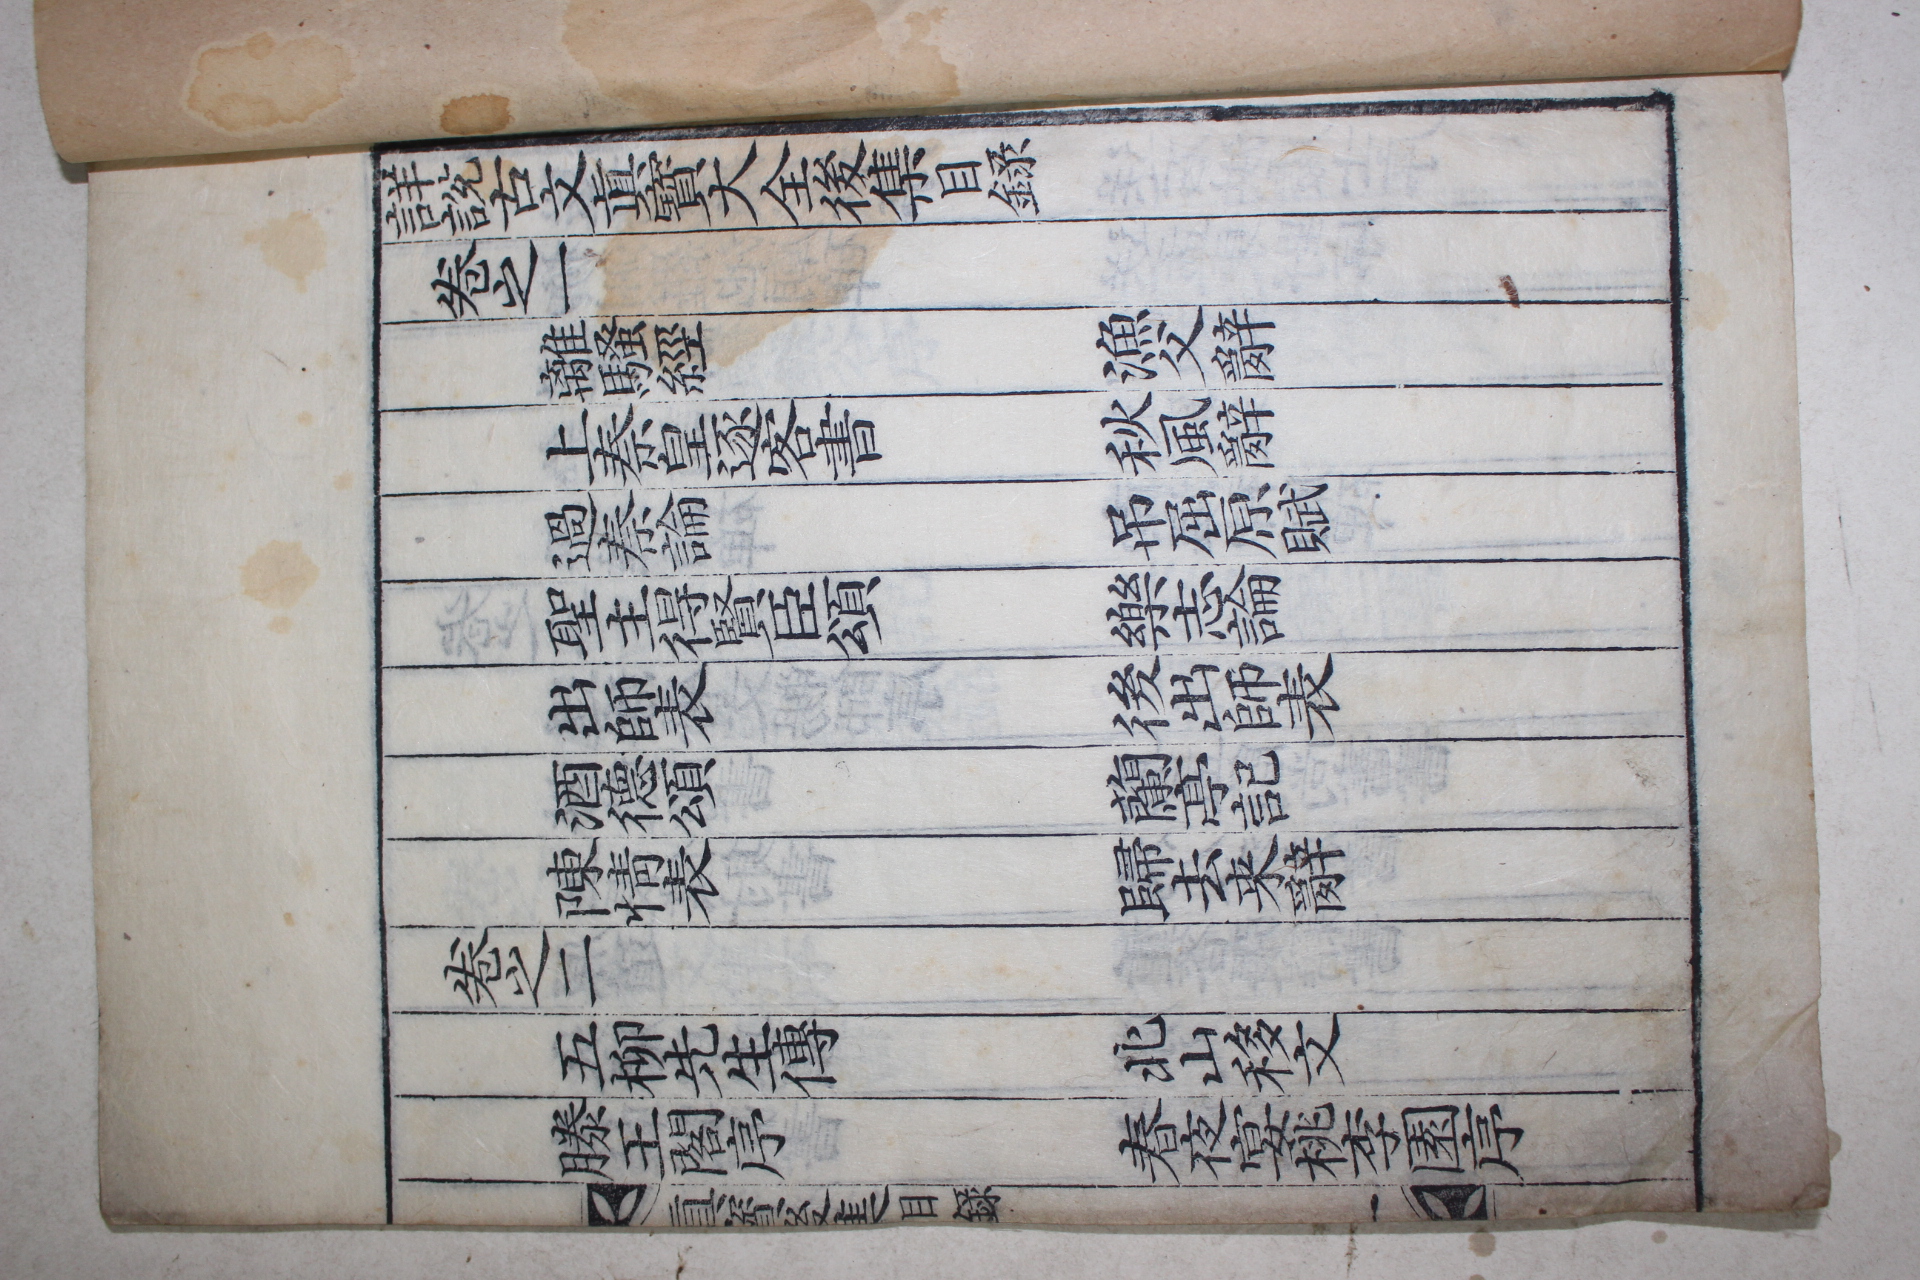 詳說古文眞寶大全後集目錄
卷之一
離騷經 漁父辭
上秦皇逐客書 秋風辭
過秦論 吊屈原賦
聖主得賢臣頌 樂志論
出師表 後出師表
酒德頌 蘭亭記
陳情表 歸去来辭
卷之二
五柳先生傳 北山移文
滕王閣序 春夜宴桃李園序
眞寶後集目錄 一